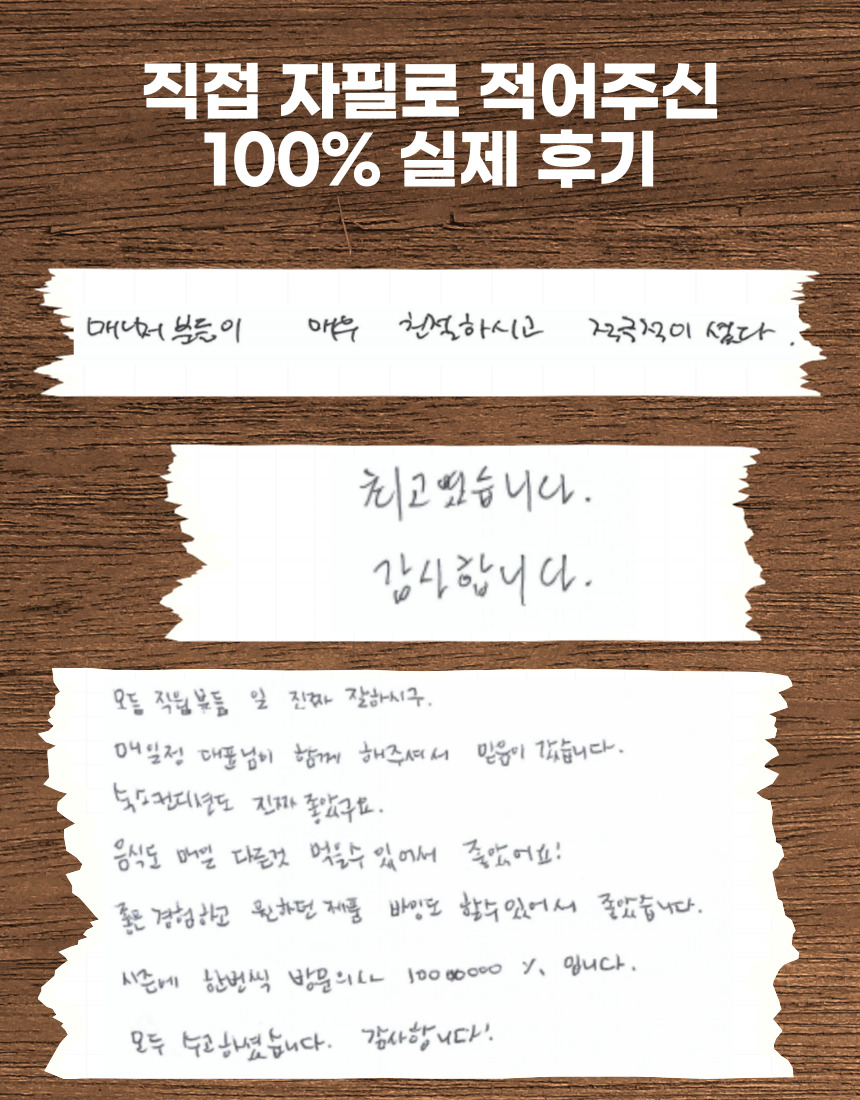 직접 자필로 적어주신
100% 실제 후기
매니저 분들이 매우 친절하시고 적극적이셨다.
최고였습니다.
감사합니다.
모든 직원분들 일 진짜 잘하시구.
매일정 대표님이 함께 해주셔서 믿음이 갔습니다.
숙소컨디션도 진짜 좋았구요.
음식도 매일 다른것 먹을수 있어서 좋았어요!
좋은 경험하고 원하던 제품 바잉도 할수있어서 좋았습니다.
시즌에 한번씩 방문의사 100000000 % 입니다.
모두 수고하셨습니다. 감사합니다!